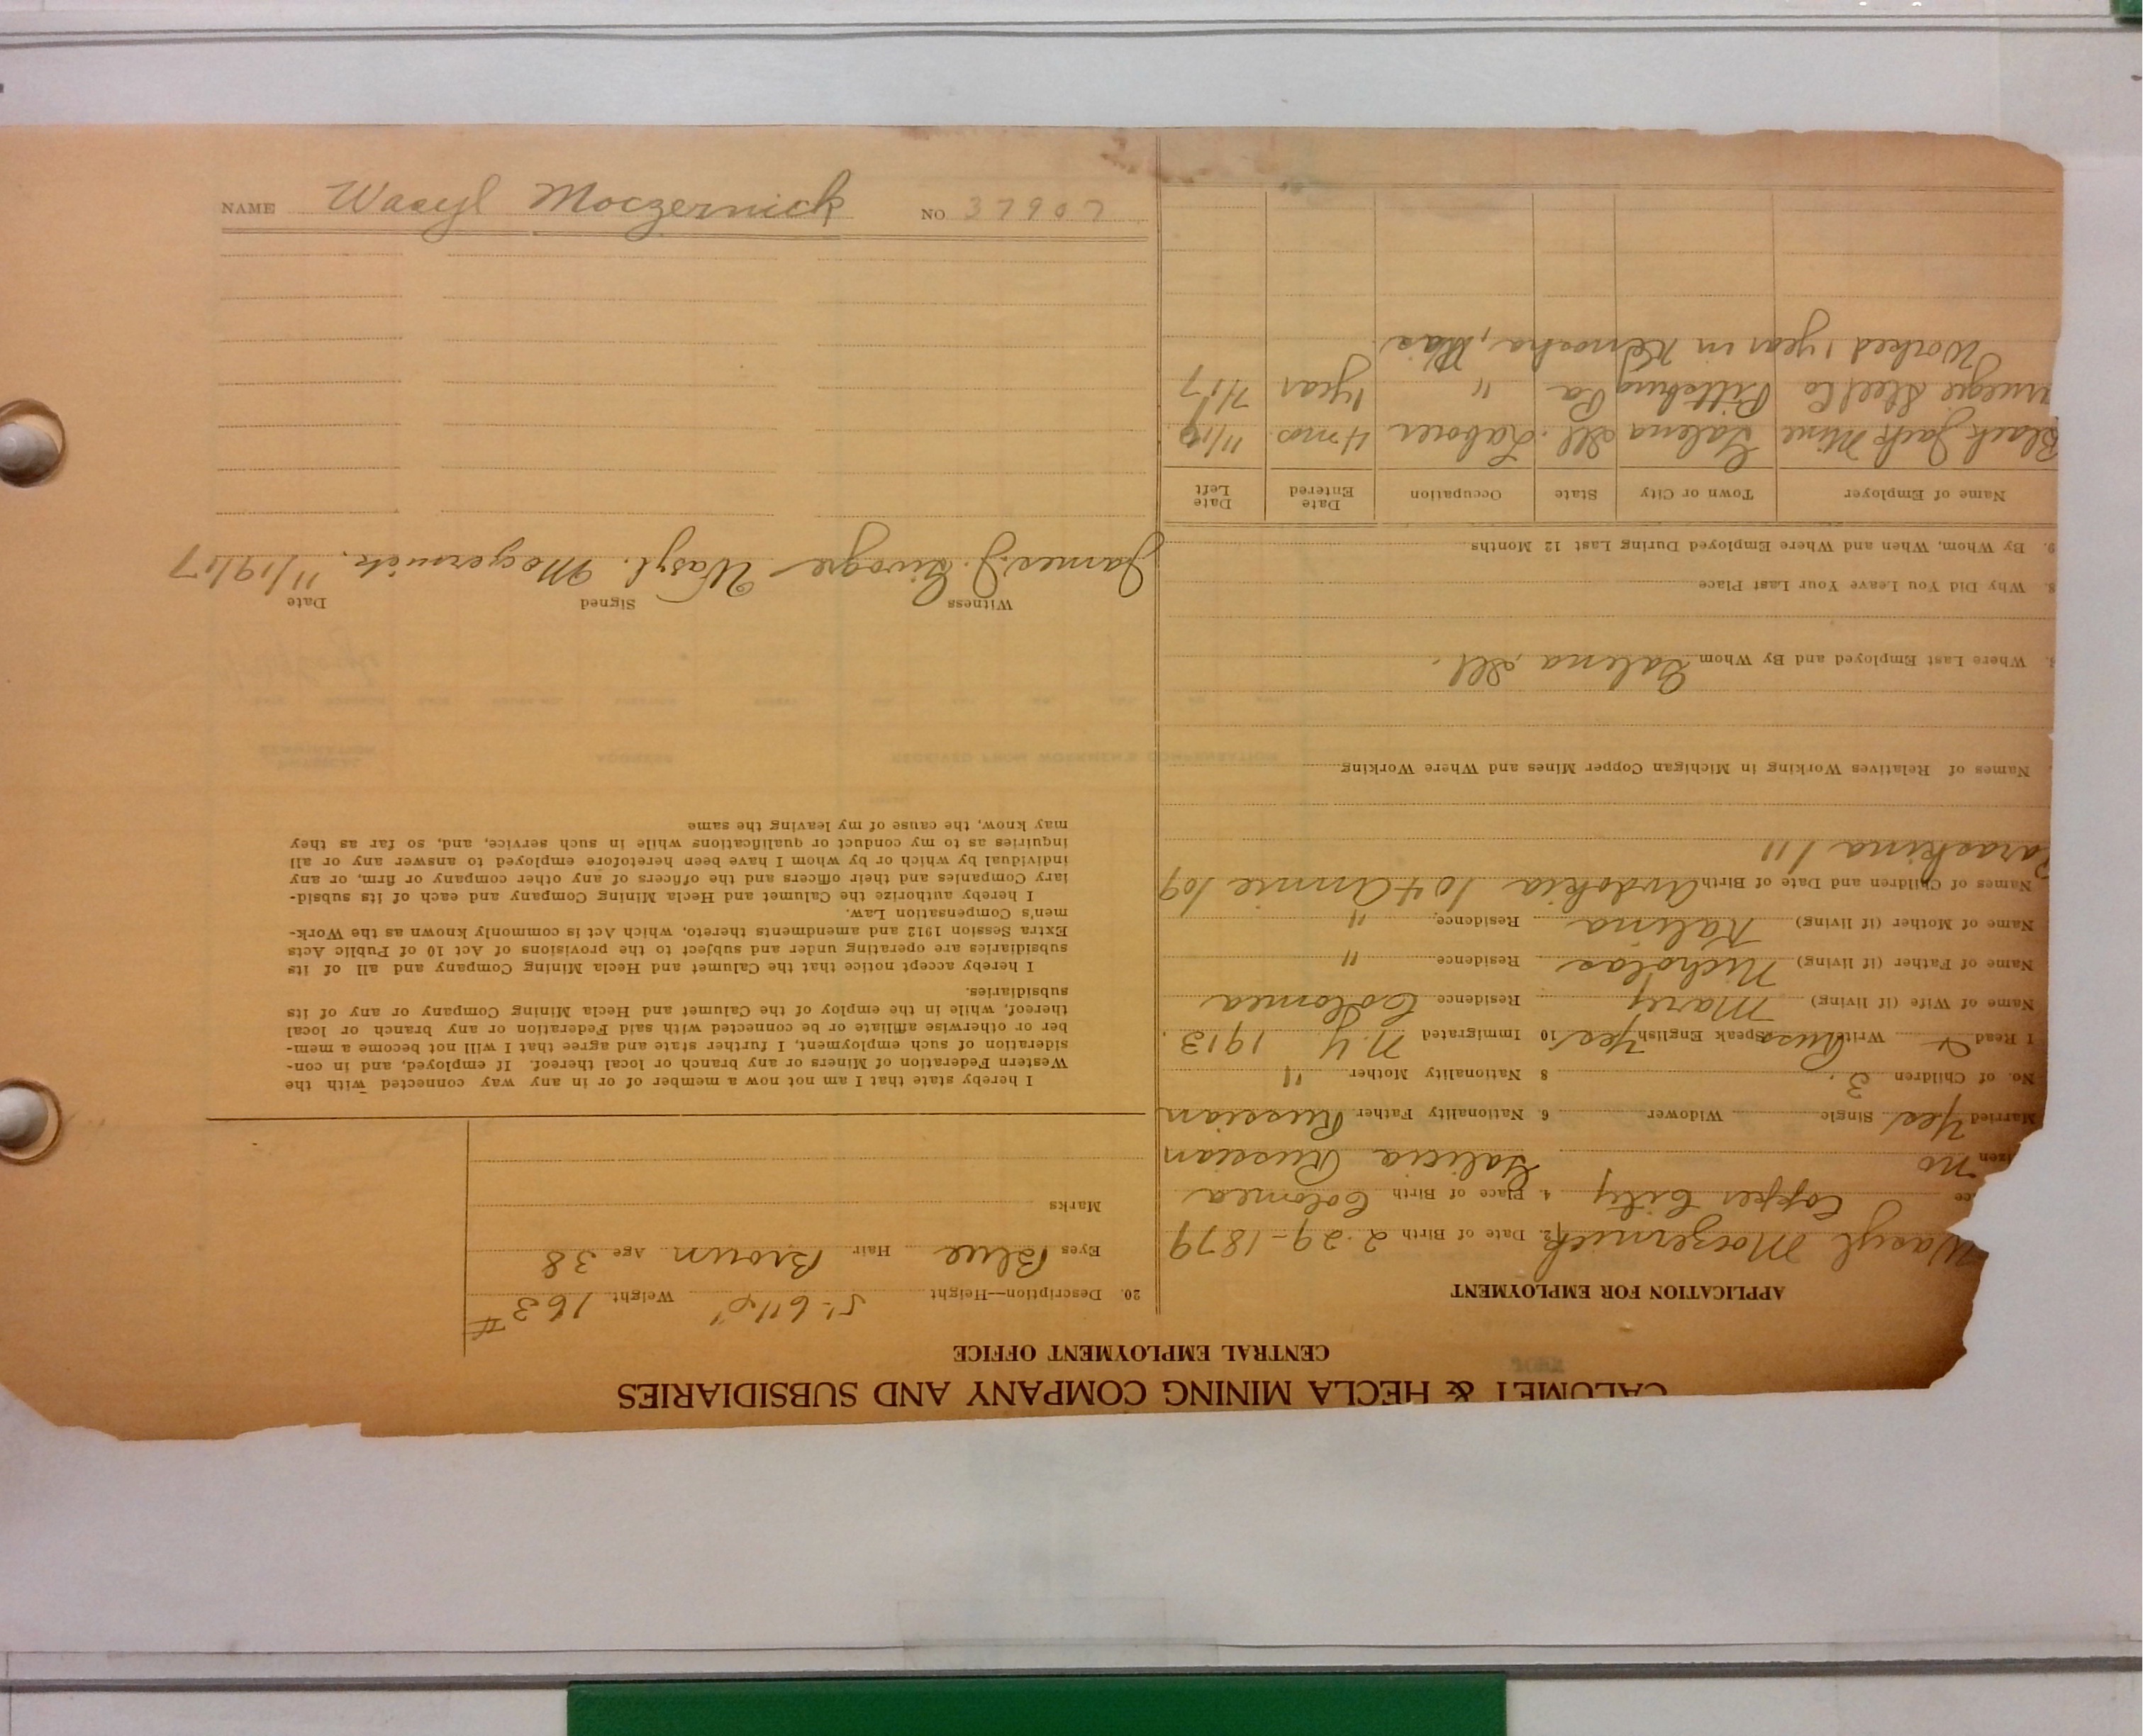 NAME Wasyl Moczernick NO. 37907
CALUMET & HECLA MINING COMPANY AND SUBSIDIARIES
CENTRAL EMPLOYMENT OFFICE
APPLICATION FOR EMPLOYMENT
Wasyl Moczernick 2. Date of Birth 2-29-1879
ce Copper City 4. Place of Birth Colomea
izen no Galicia Russian
Married Yes Single Widower 6. Nationality Father Russian
No. of Children 3. 8 Nationality Mother "
I Read & Write Russ Speak English Yes 10 Immigrated N.Y. 1913.
Name of Wife (if living) Mary Residence Colomea
Name of Father (if living) Nicholas Residence "
Name of Mother (if living) Kalina Residence "
Names of Children and Date of Birth Avdokia 104 Annie 109
Paraskina 111
Names of Relatives Working in Michigan Copper Mines and Where Working
Where Last Employed and By Whom Galena, Ill.
8. Why Did You Leave Your Last Place
9. By Whom, When and Where Employed During Last 12 Months
Name of Employer Town or City State Occupation Date Entered Date Left
Black Jack Mine Galena Ill. Laborer 4 mos. 11/17
rnegie Steel Co Pittsburg Pa " 1 year 7/17
Worked 1 year in Kenosha, Wis
20. Description—Height 5'-6 1/2" Weight 163 #
Eyes Blue Hair Brown Age 38
Marks
I hereby state that I am not now a member of or in any way connected with the
Western Federation of Miners or any branch or local thereof. If employed, and in con-
sideration of such employment, I further state and agree that I will not become a mem-
ber or otherwise affiliate or be connected with said Federation or any branch or local
thereof, while in the employ of the Calumet and Hecla Mining Company or any of its
subsidiaries.
I hereby accept notice that the Calumet and Hecla Mining Company and all of its
subsidiaries are operating under and subject to the provisions of Act 10 of Public Acts
Extra Session 1912 and amendments thereto, which Act is commonly known as the Work-
men's Compensation Law.
I hereby authorize the Calumet and Hecla Mining Company and each of its subsid-
iary Companies and their officers and the officers of any other company or firm, or any
individual by which or by whom I have been heretofore employed to answer any or all
inquiries as to my conduct or qualifications while in such service, and, so far as they
may know, the cause of my leaving the same
Witness Signed Date
James J. Wasyl. Moczernick. 11/19/17